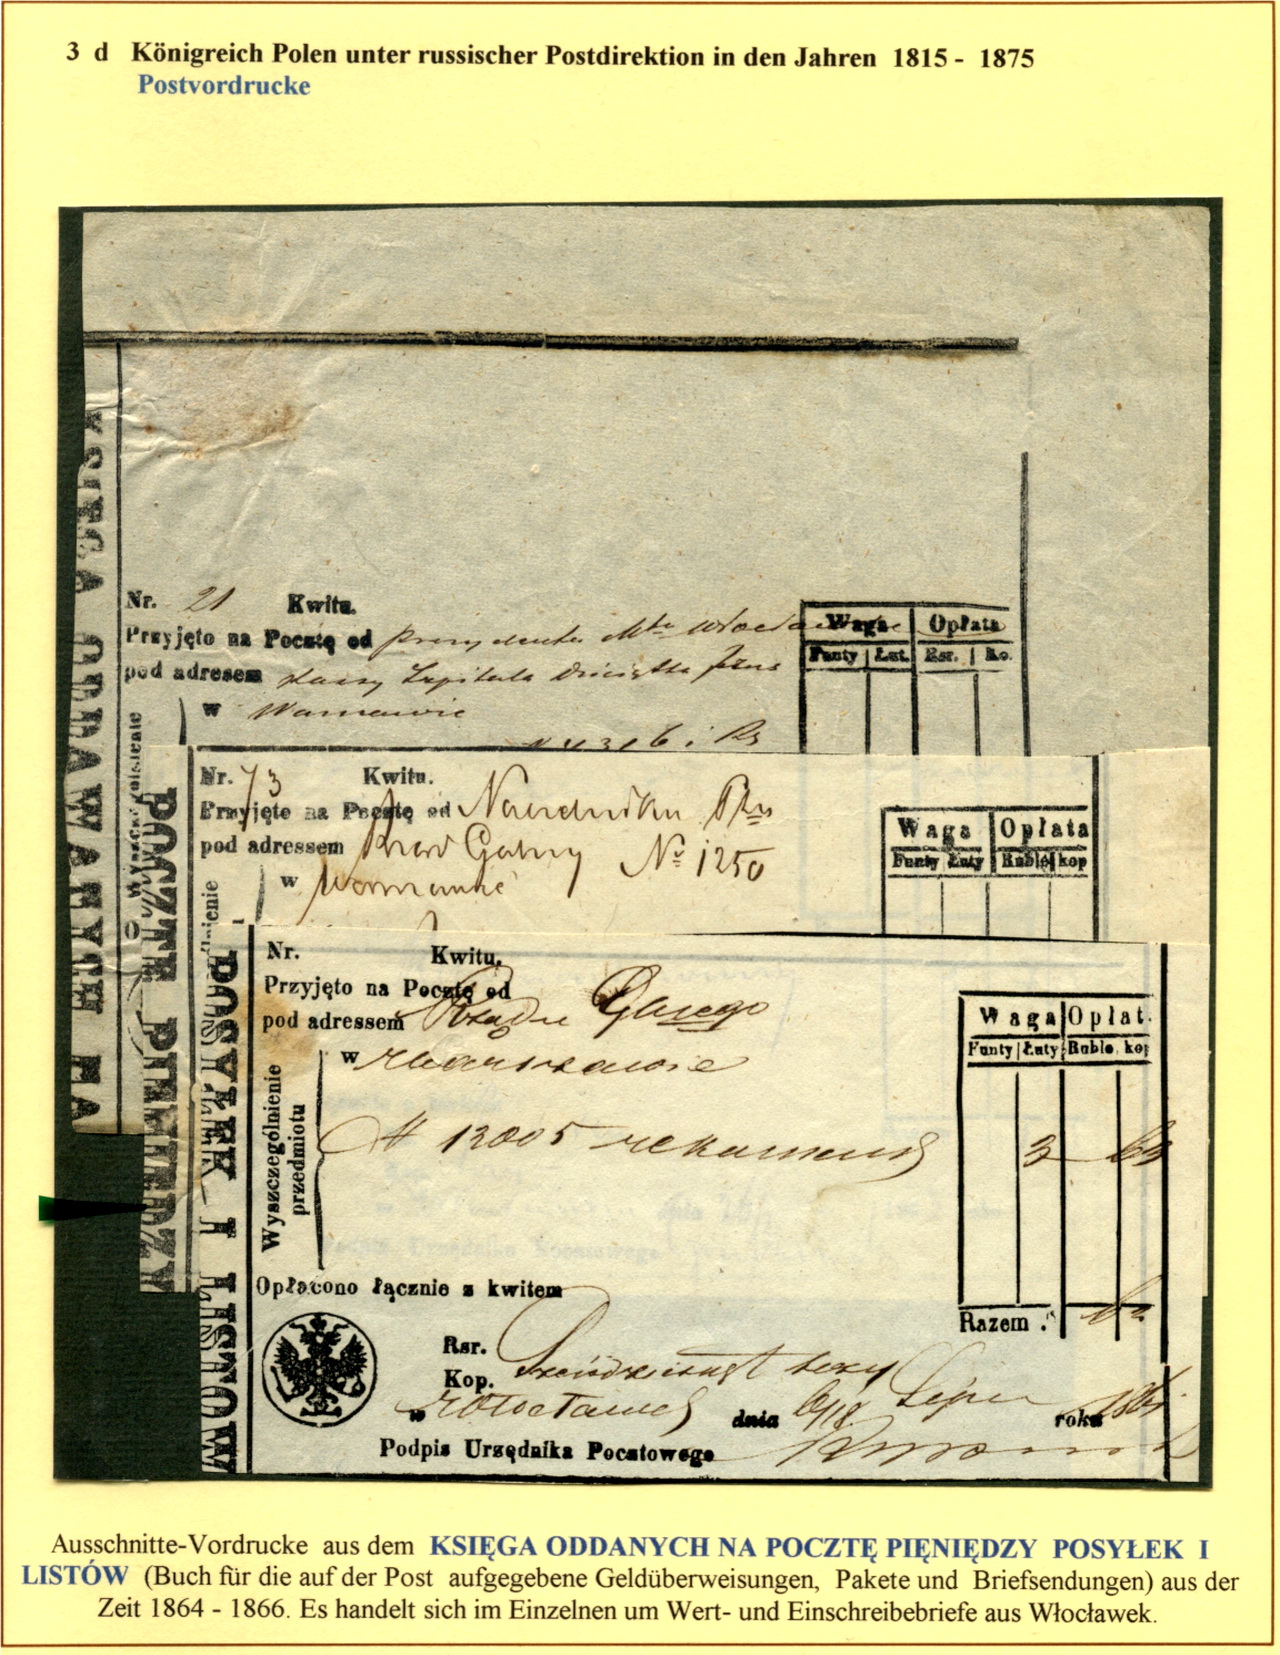 3 d Königreich Polen unter russischer Postdirektion in den Jahren 1815 - 1875
Postvordrucke
KSIĘGA ODDAWANYCH NA
Nr. 21 Kwitu.
Przyjęto na Pocztę od prezydenta Mta
pod adresem Szpitala Dzieciątka Jezus
w Warszawie
Waga Opłata
Funty Łut. Rsr. Ko.
POCZTĘ PIENIĘDZY
Nr. 73 Kwitu.
Przyjęte na Pocztę od Naczelnika
pod adressem Rząd Gubny № 1250
w Warszawie
Waga Opłata
Funty Łuty Ruble kop
POSYŁEK I LISTÓW
Nr. Kwitu.
Przyjęto na Pocztę od
pod adressem Rządu
w Warszawie
Waga Opłat.
Funty Łuty Ruble. kop
Wyszczególnienie
przedmiotu
# 12005 3
Opłacono łącznie z kwitem
Razem
Rsr.
Kop. Sześćdziesiąt trzy
w Włocławek dnia 6/18 Lipca roku
Podpis Urzędnika Pocztowego
Ausschnitte-Vordrucke aus dem KSIĘGA ODDANYCH NA POCZTĘ PIĘNIĘDZY POSYŁEK I
LISTÓW (Buch für die auf der Post aufgegebene Geldüberweisungen, Pakete und Briefsendungen) aus der
Zeit 1864 - 1866. Es handelt sich im Einzelnen um Wert- und Einschreibebriefe aus Włocławek.